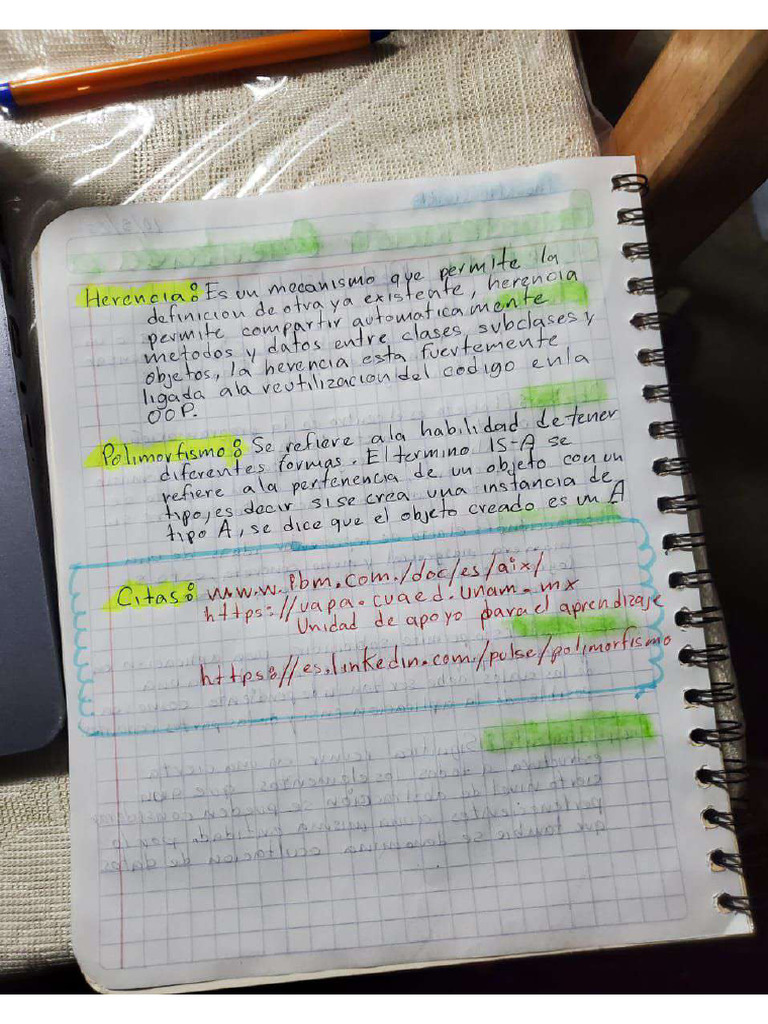 Herencia: Es un mecanismo que permite la
definicion de otra ya existente, herencia
permite compartir automaticamente
metodos y datos entre clases, subclases y
objetos, la herencia esta fuertemente
ligada ala reutilizacion del codigo en la
OOP.
Polimorfismo: Se refiere ala habilidad de tener
diferentes formas. El termino IS-A se
refiere ala pertenencia de un objeto con un
tipo, es decir si se crea una instancia de
tipo A, se dice que el objeto creado es un A
Citas: www.Ibm.com./doc/es/aix/
https://uapa.cuaed.unam.mx
Unidad de apoyo para el aprendizaje
https://es.linkedin.com/pulse/polimorfismo